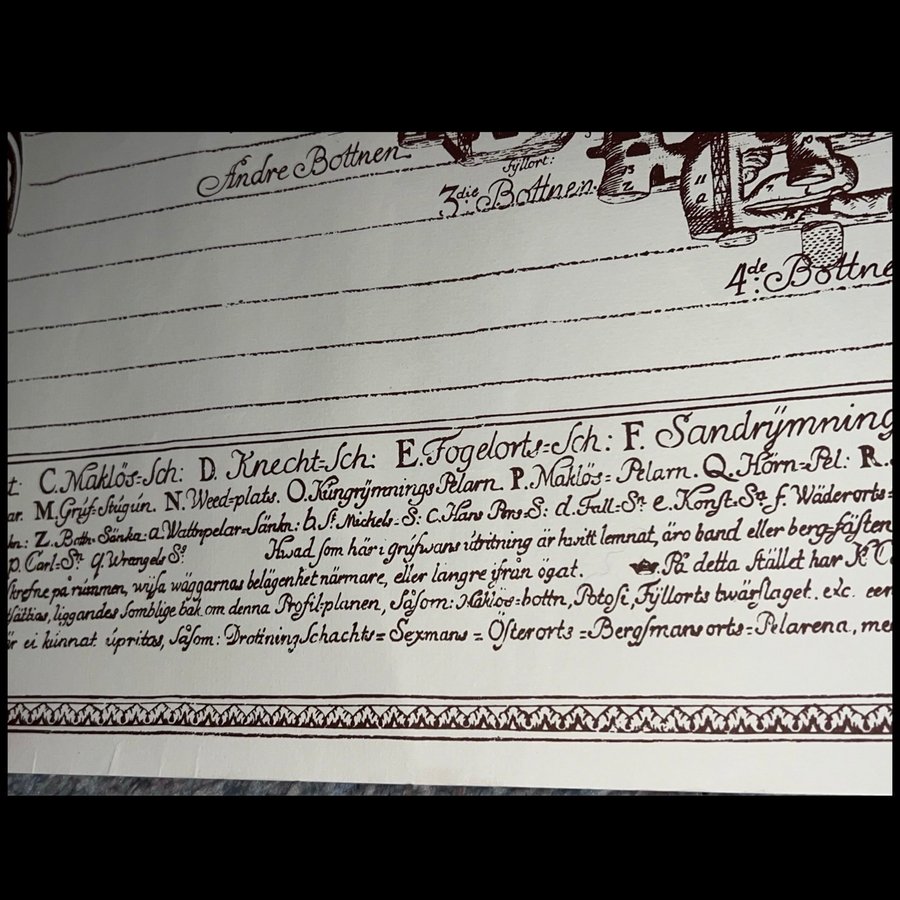 Andre Bottnen
fyllort:
3die Bottnen
4de Bottne
t: C. Maklös=Sch: D. Knecht=Sch: E. Fogelorts=Sch: F. Sandrÿmning
ar. M. Grúf=Stúgún. N. Weed=plats. O. Kúngrÿmnings Pelarn. P. Maklös=Pelarn. Q. Hörn=Pel: R.
kn: Z. Botn=Sänka: a. Wattnpelar=Sänkn: b. St. Mickels=S: c. Hans Pers=S: d. Fall=Sn e. Konst=Sa f. Wäderorts=
p. Carl=Sn q. Wrangels Sg
Hwad som här i grúfwans útritning är hwitt lemnat, äro band eller berg=fästen
På detta stället har K
skrefne på rúmmen, wisa wäggarnas belägenhet närmare, eller längre ifrån ögat.
liggandes somblige bak om denna Profil=planen, såsom: Maklös=bottn, Potosi, Fÿllorts twärslaget. etc. een
är ei kúnnat úpritas, såsom: Drotining Schachts=Sexmans=Österorts=Bergsmans orts=Pelarena, me